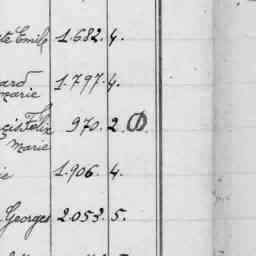 Emile 1.682. 4.
ard 1.797. 4.
marie
Felix 970. 2.
Marie
ie 1.906. 4.
Georges 2.053. 5.